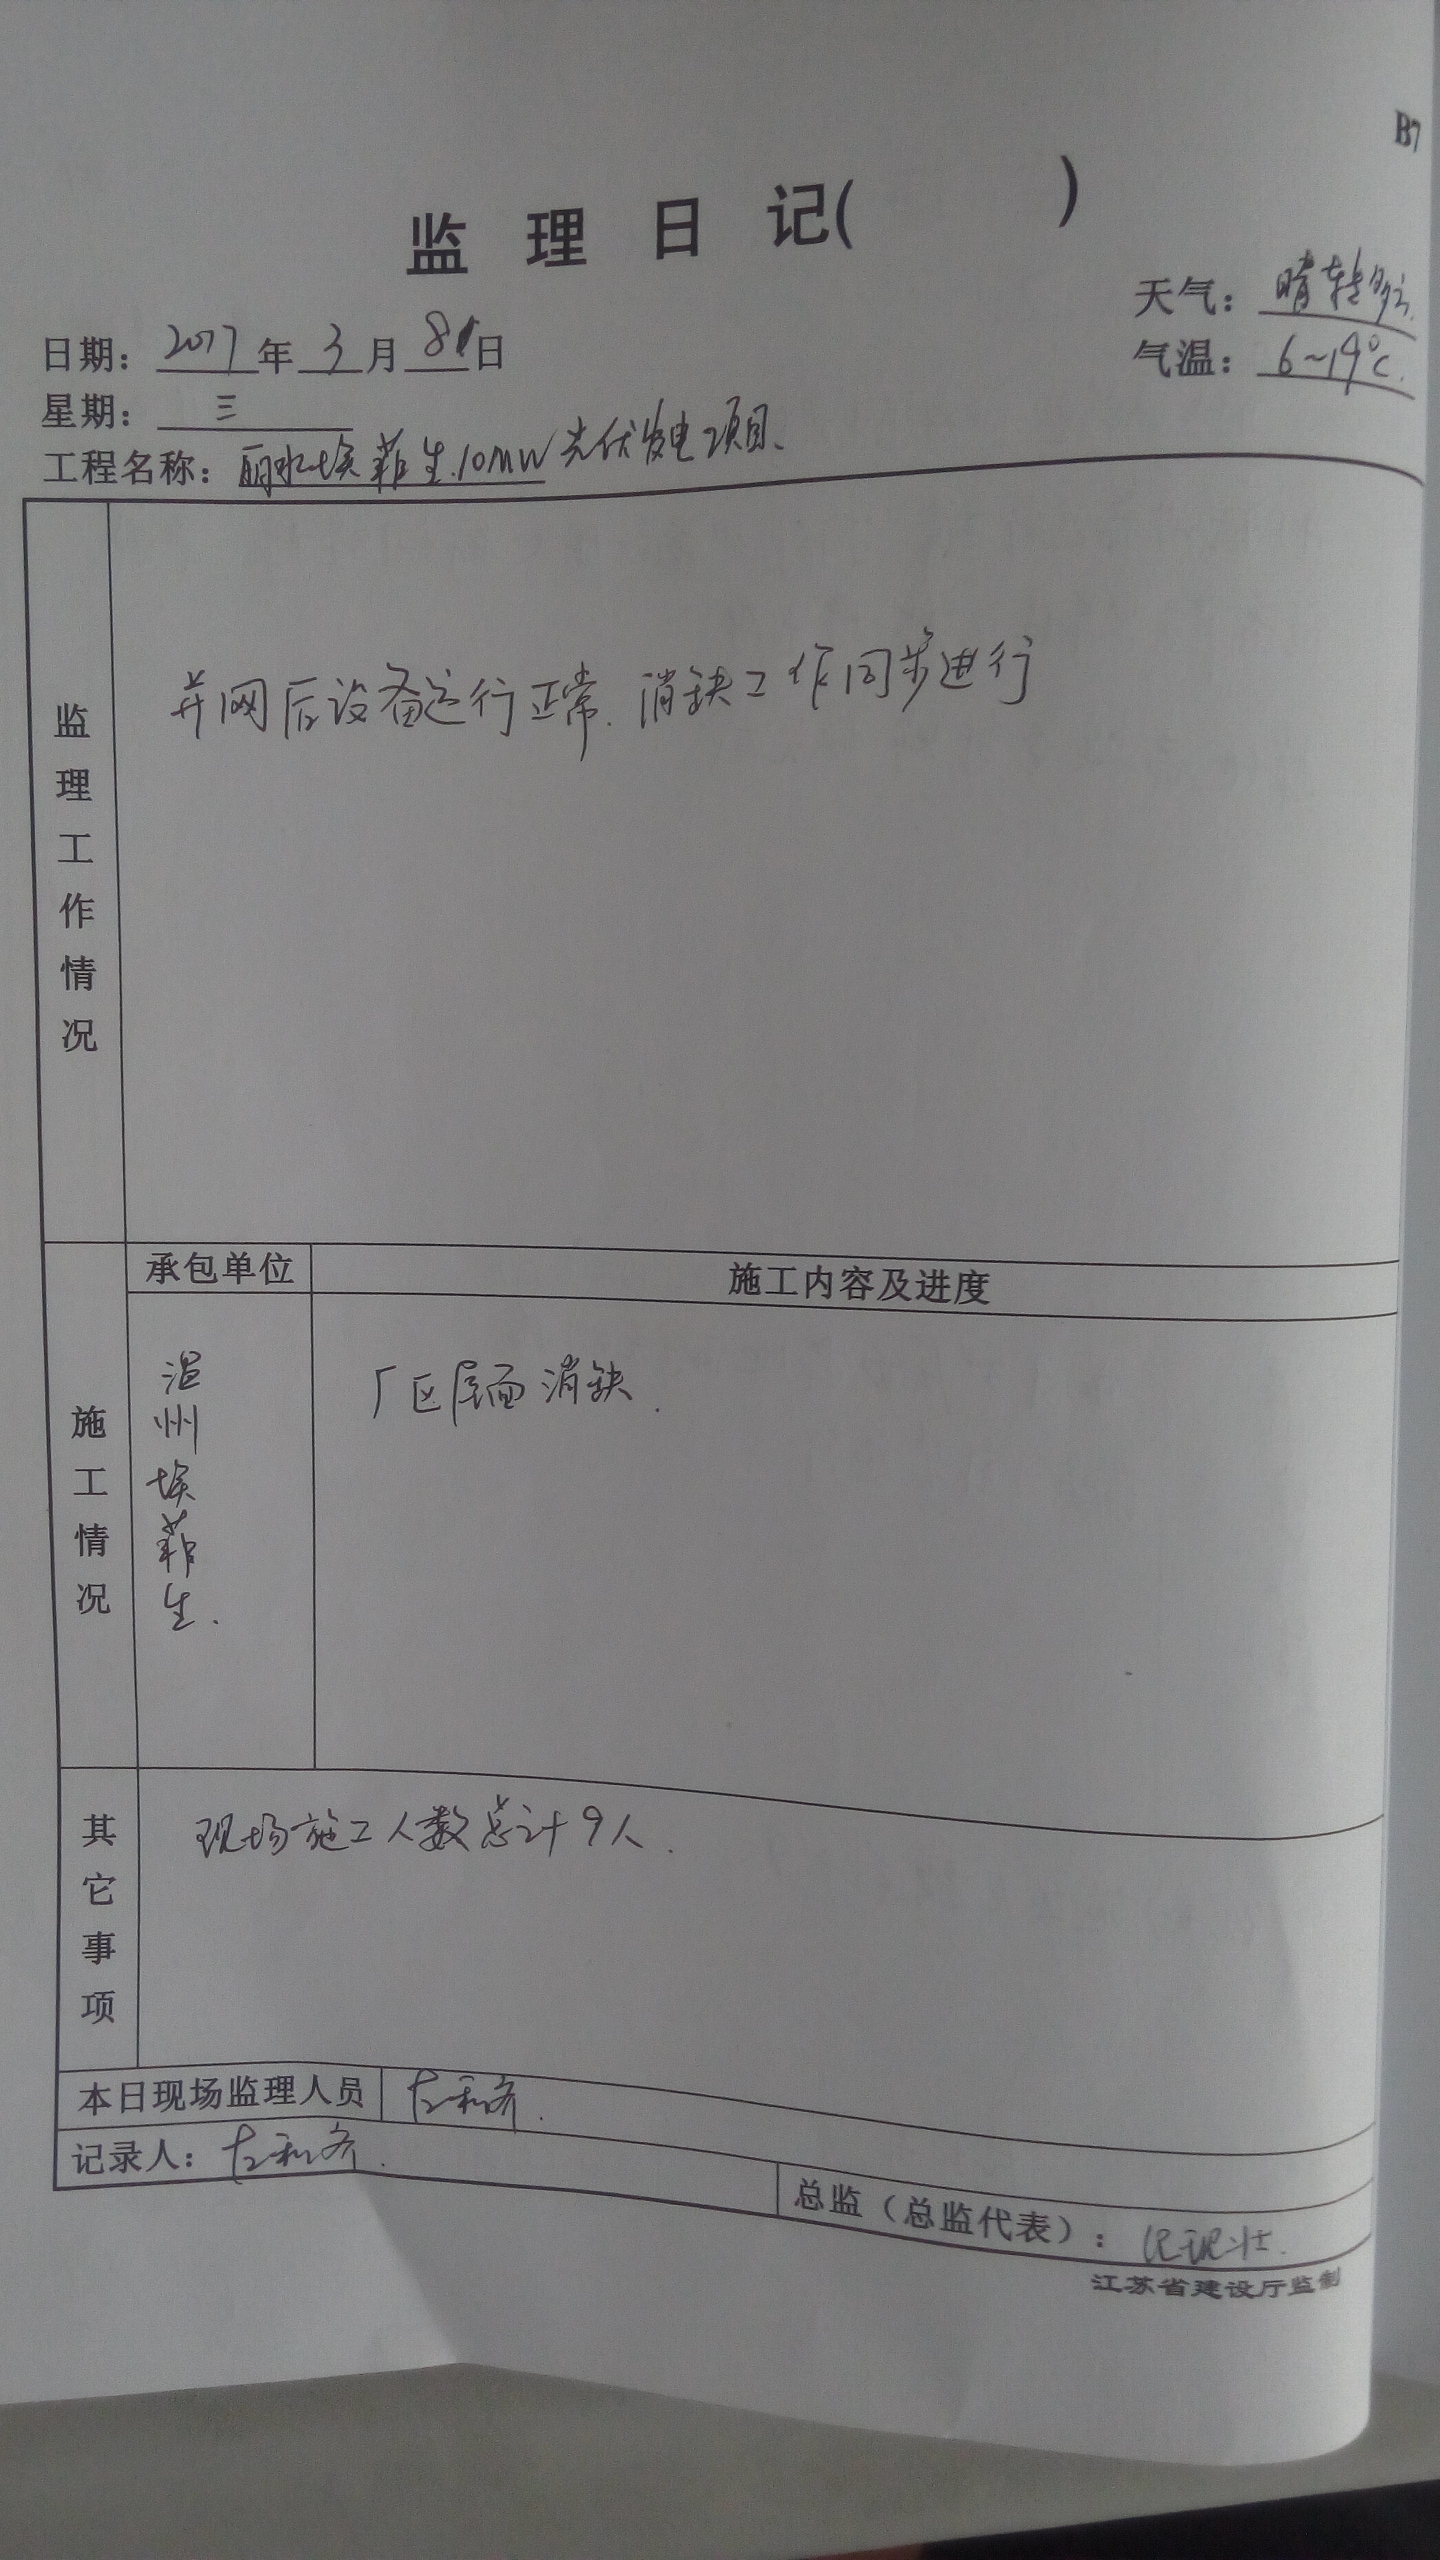 B7
监理日记( )
天气：晴转多云.
日期：2017年3月8日
气温：6~19℃.
星期：三
工程名称：丽水埃菲生10MW光伏发电项目、
监理工作情况
并网后设备运行正常.消缺工作同步进行
承包单位
施工内容及进度
施工情况
温州埃菲生.
厂区屋面消缺.
其它事项
现场施工人数总计9人.
本日现场监理人员
记录人：
总监（总监代表）：
江苏省建设厅监制